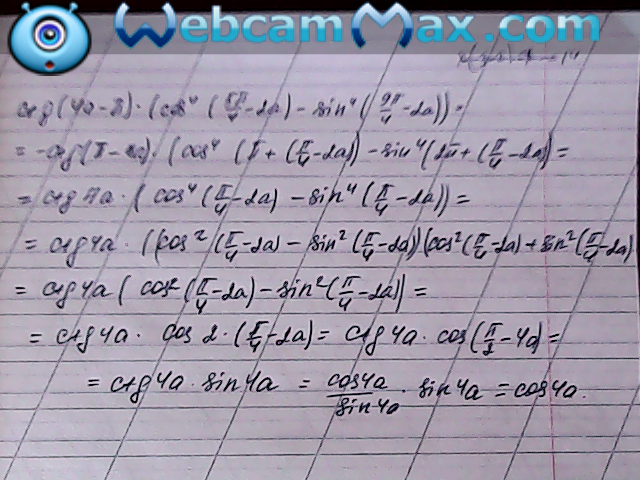 WebcamMax.com
ctg(4a-π)·(cos⁴(5π/4-2a)-sin⁴(9π/4-2a))=
=-ctg(π-4a)·(cos⁴(π+(π/4-2a))-sin⁴(2π+(π/4-2a))=
=ctg4a·(cos⁴(π/4-2a)-sin⁴(π/4-2a))=
=ctg4a·((cos²(π/4-2a)-sin²(π/4-2a))(cos²(π/4-2a)+sin²(π/4-2a)
=ctg4a(cos²(π/4-2a)-sin²(π/4-2a))=
=ctg4a·cos2·(π/4-2a)=ctg4a·cos(π/2-4a)=
=ctg4a·sin4a=cos4a/sin4a·sin4a=cos4a.